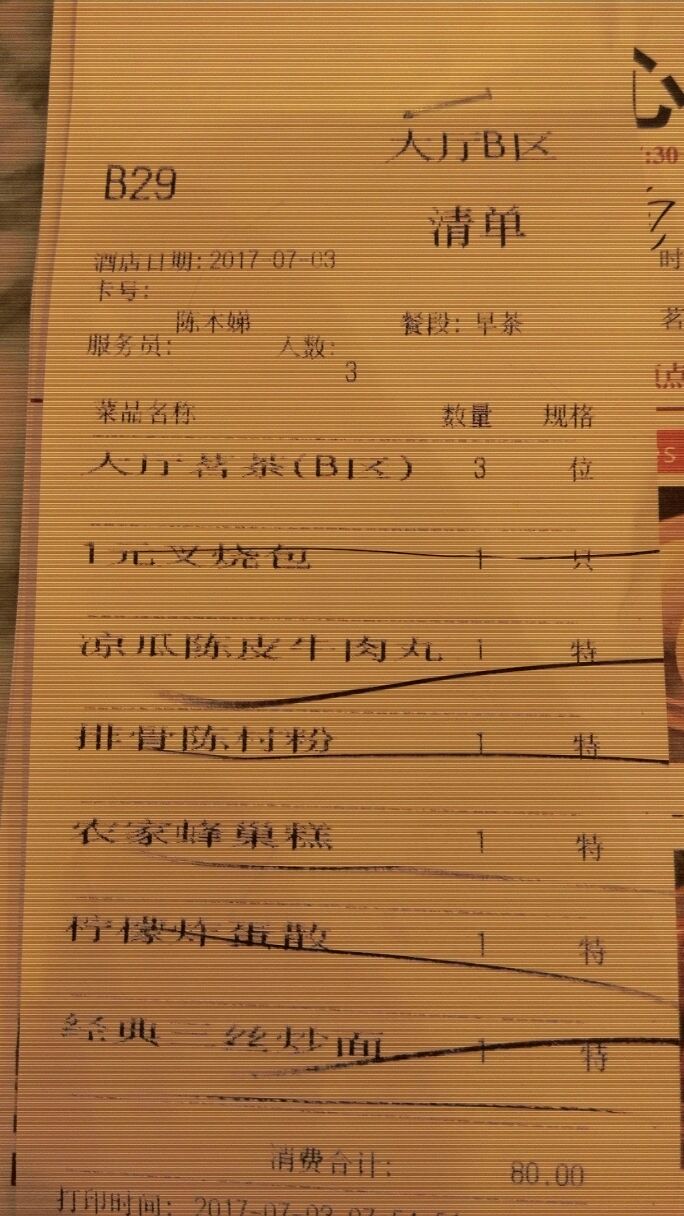 大厅B区
B29
清单
酒店日期: 2017-07-03
卡号:
陈木娣 餐段: 早茶
服务员: 人数:
3
菜品名称 数量 规格
大厅茗茶(B区) 3 位
1元叉烧包 1 只
凉瓜陈皮牛肉丸 1 特
排骨陈村粉 1 特
农家蜂巢糕 1 特
柠檬炸蛋散 1 特
经典三丝炒面 1 特
消费合计: 80.00
打印时间: 2017-07-03
心
:30
时
茗
点